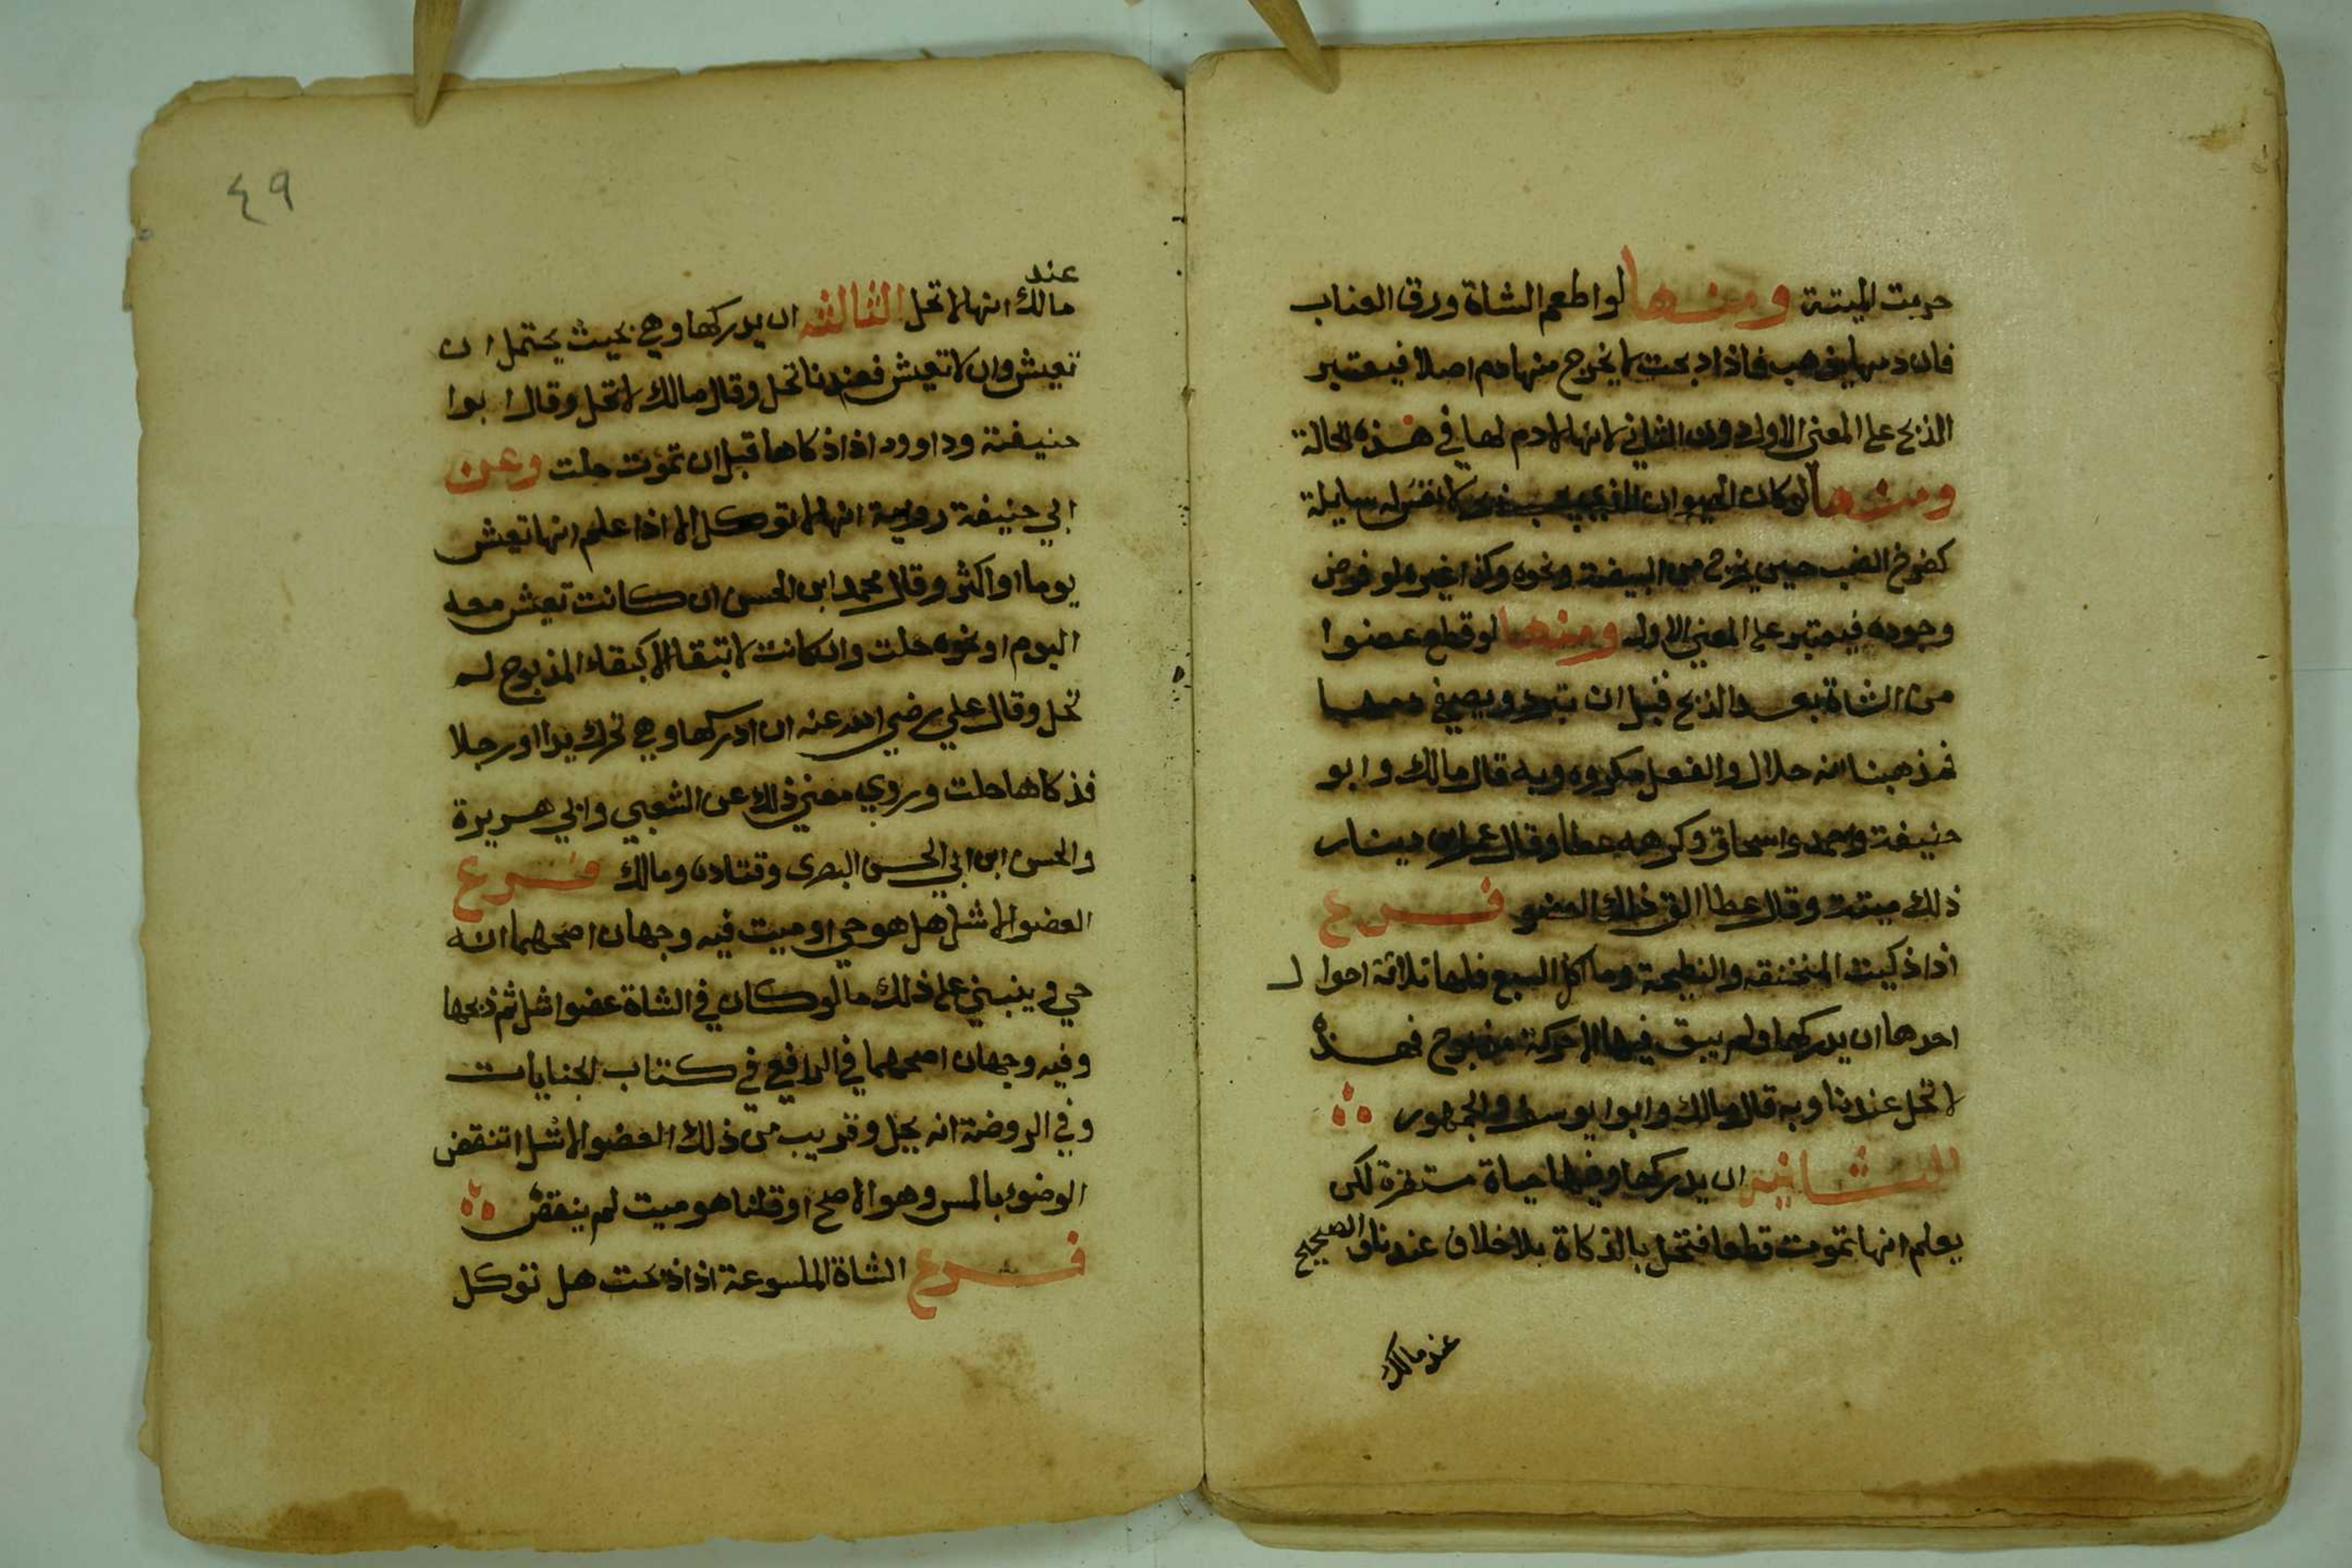 حرمت الميتة ومنها لو اطعم الشاة ورق العناب
فان دمها يذهب فاذا ذبحت لا يخرج منها دم اصلا فيعتبر
الذبح على المعنى الاول دون الثاني لانها لا دم لها في هذه الحالة
ومنها لو كان الحيوان الذي لا نفس له سايلة
كفرخ الضب حين يخرج من البيضة ونحوه وكذا غيره لو فرض
وجوده فيعتبر على المعنى الاول ومنها لو قطع عضوا
من الشاة بعد الذبح قبل ان تبرد ويصفى دمها
فمذهبنا انه حلال والفعل مكروه وبه قال مالك وابو
حنيفة واحمد واسحاق وكرهه عطا وقال عمرو بن دينار
ذلك ميتة وقال عطا الق ذلك العضو فرع
اذا ذكيت المنخنقه والنطيحة وما اكل السبع فلها ثلاثة احوال
احدها ان يدركها ولم يبق فيها الا حركة مذبوح فهذه
لا تحل عندنا وبه قال مالك وابو ايوسف والجمهور
الثانية ان يدركها وفيها حياة مستقرة لكن
يعلم انها تموت قطعا فتحل بالذكاة بلا خلاف عندنا والصحيح
عند مالك
٤٩
عند
مالك انها لا تحل الثالثه ان يدركها وهي بحيث يحتمل ان
تعيش وان لا تعيش فعندنا تحل وقال مالك لا تحل وقال ابوا
حنيفة وداوود اذا ذكاها قبل ان تموت حلت وعن
ابي حنيفة رواية انها لا توكل الا اذا علم انها تعيش
يوما او اكثر وقال محمد ابن الحسن ان كانت تعيش معه
اليوم او نحوه حلت وان كانت لا تبقا الا كبقاء المذبوح لم
تحل وقال علي رضي الله عنه ان ادركها وهي تحرك يدا او رجلا
فذكاها حلت وروي معنى ذلك عن الشعبي وابي هريرة
والحسن ابن ابي الحسن البصرى وقتاده ومالك فرع
العضو الاشل هل هو حي او ميت فيه وجهان اصحهما انه
حي وينبني على ذلك ما لو كان في الشاة عضوا شل ثم ذبحها
وفيه وجهان اصحهما في الرافعي في كتاب الجنايات
وفي الروضة انه يحل وقريب من ذلك العضو الاشل اتنقض
الوضوء بالمس وهو الاصح او قلنا هو ميت لم ينقض
فرع الشاة الملسوعة اذا ذبحت هل توكل